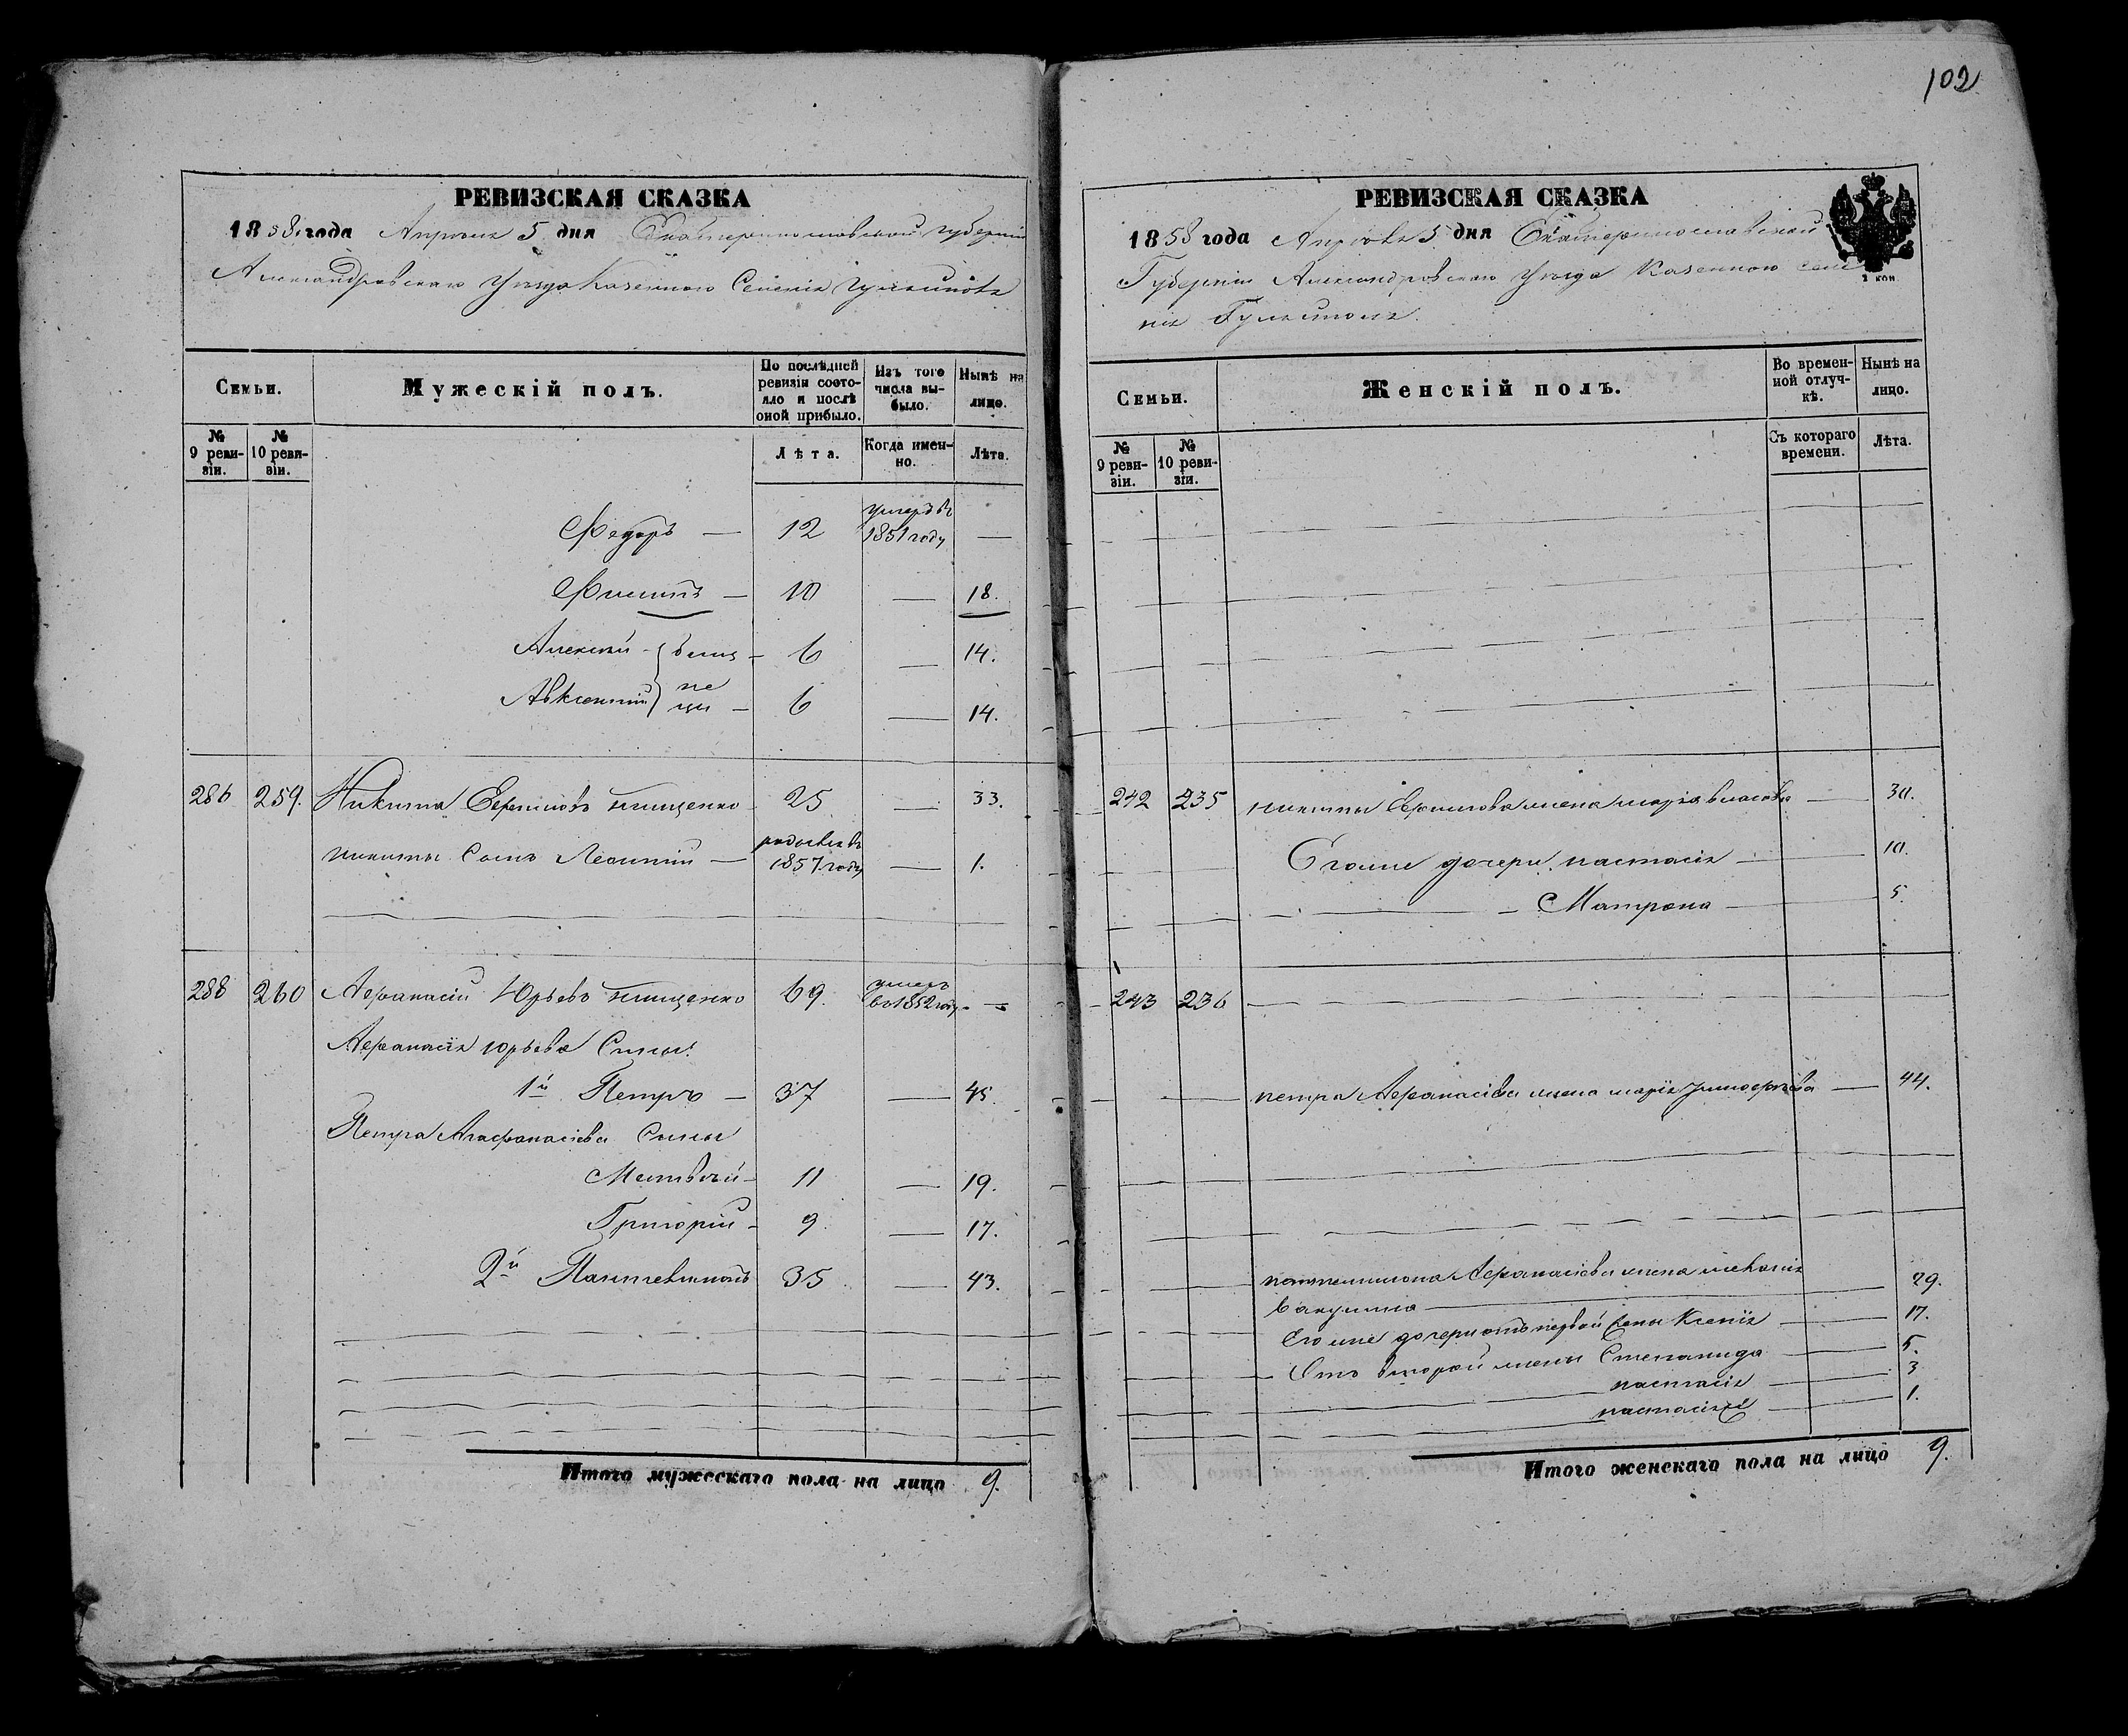 102
РЕВИЗСКАЯ СКАЗКА
1858 года Апреля 5 дня Екатеринославской губернии
Александровского Уезда Казенного Селения Гуляйполя
Семьи.
Мужескій полъ.
По послѣдней ревизіи состояло и послѣ оной прибыло.
Изъ того числа выбыло.
Нынѣ на лицо.
№ 9 ревизіи.
№ 10 ревизіи.
Лѣта.
Когда именно.
Лѣта.
Федоръ — 12 умеръ въ 1851 году —
Филипъ — 10 — 18.
Алексей - 6 — 14.
Авксентий - 6 — 14.
286 259. Никита Ефимовъ 25 — 33.
Никиты Сынъ Леонтий — родился въ 1857 году — 1.
288 260 Афанасий Юрьевъ 69. умеръ въ 1852 году —
Афанасия Юрьева Сыны:
1й Петръ — 37 — 45.
Петра Агафанасиева Сыны
Матвей - 11 — 19.
Григорій - 9 — 17.
2й Пантелимонъ 35 — 43.
Итого мужескаго пола на лицо 9.
РЕВИЗСКАЯ СКАЗКА
1858 года Апреля 5 дня Екатеринославской
Губернии Александровского Уезда Казенного Селе
ния Гуляйполя.
2 коп.
Семьи.
Женскій полъ.
Во временной отлучкѣ.
Нынѣ на лицо.
№ 9 ревизіи.
№ 10 ревизіи.
Съ котораго времени.
Лѣта.
242 235 Никиты Ефимова жена Мария Власова — 30.
Его же дочери Настасия — 10.
Матрона — 5.
243 236 —
Петра Афанасиева жена Мария — 44.
Пантелимона Афанасиева жена 29.
Его же дочери отъ первой жены Ксения — 17.
Отъ второй жены Степанида — 5.
Настасия — 3
Настасия — 1.
Итого женскаго пола на лицо 9.